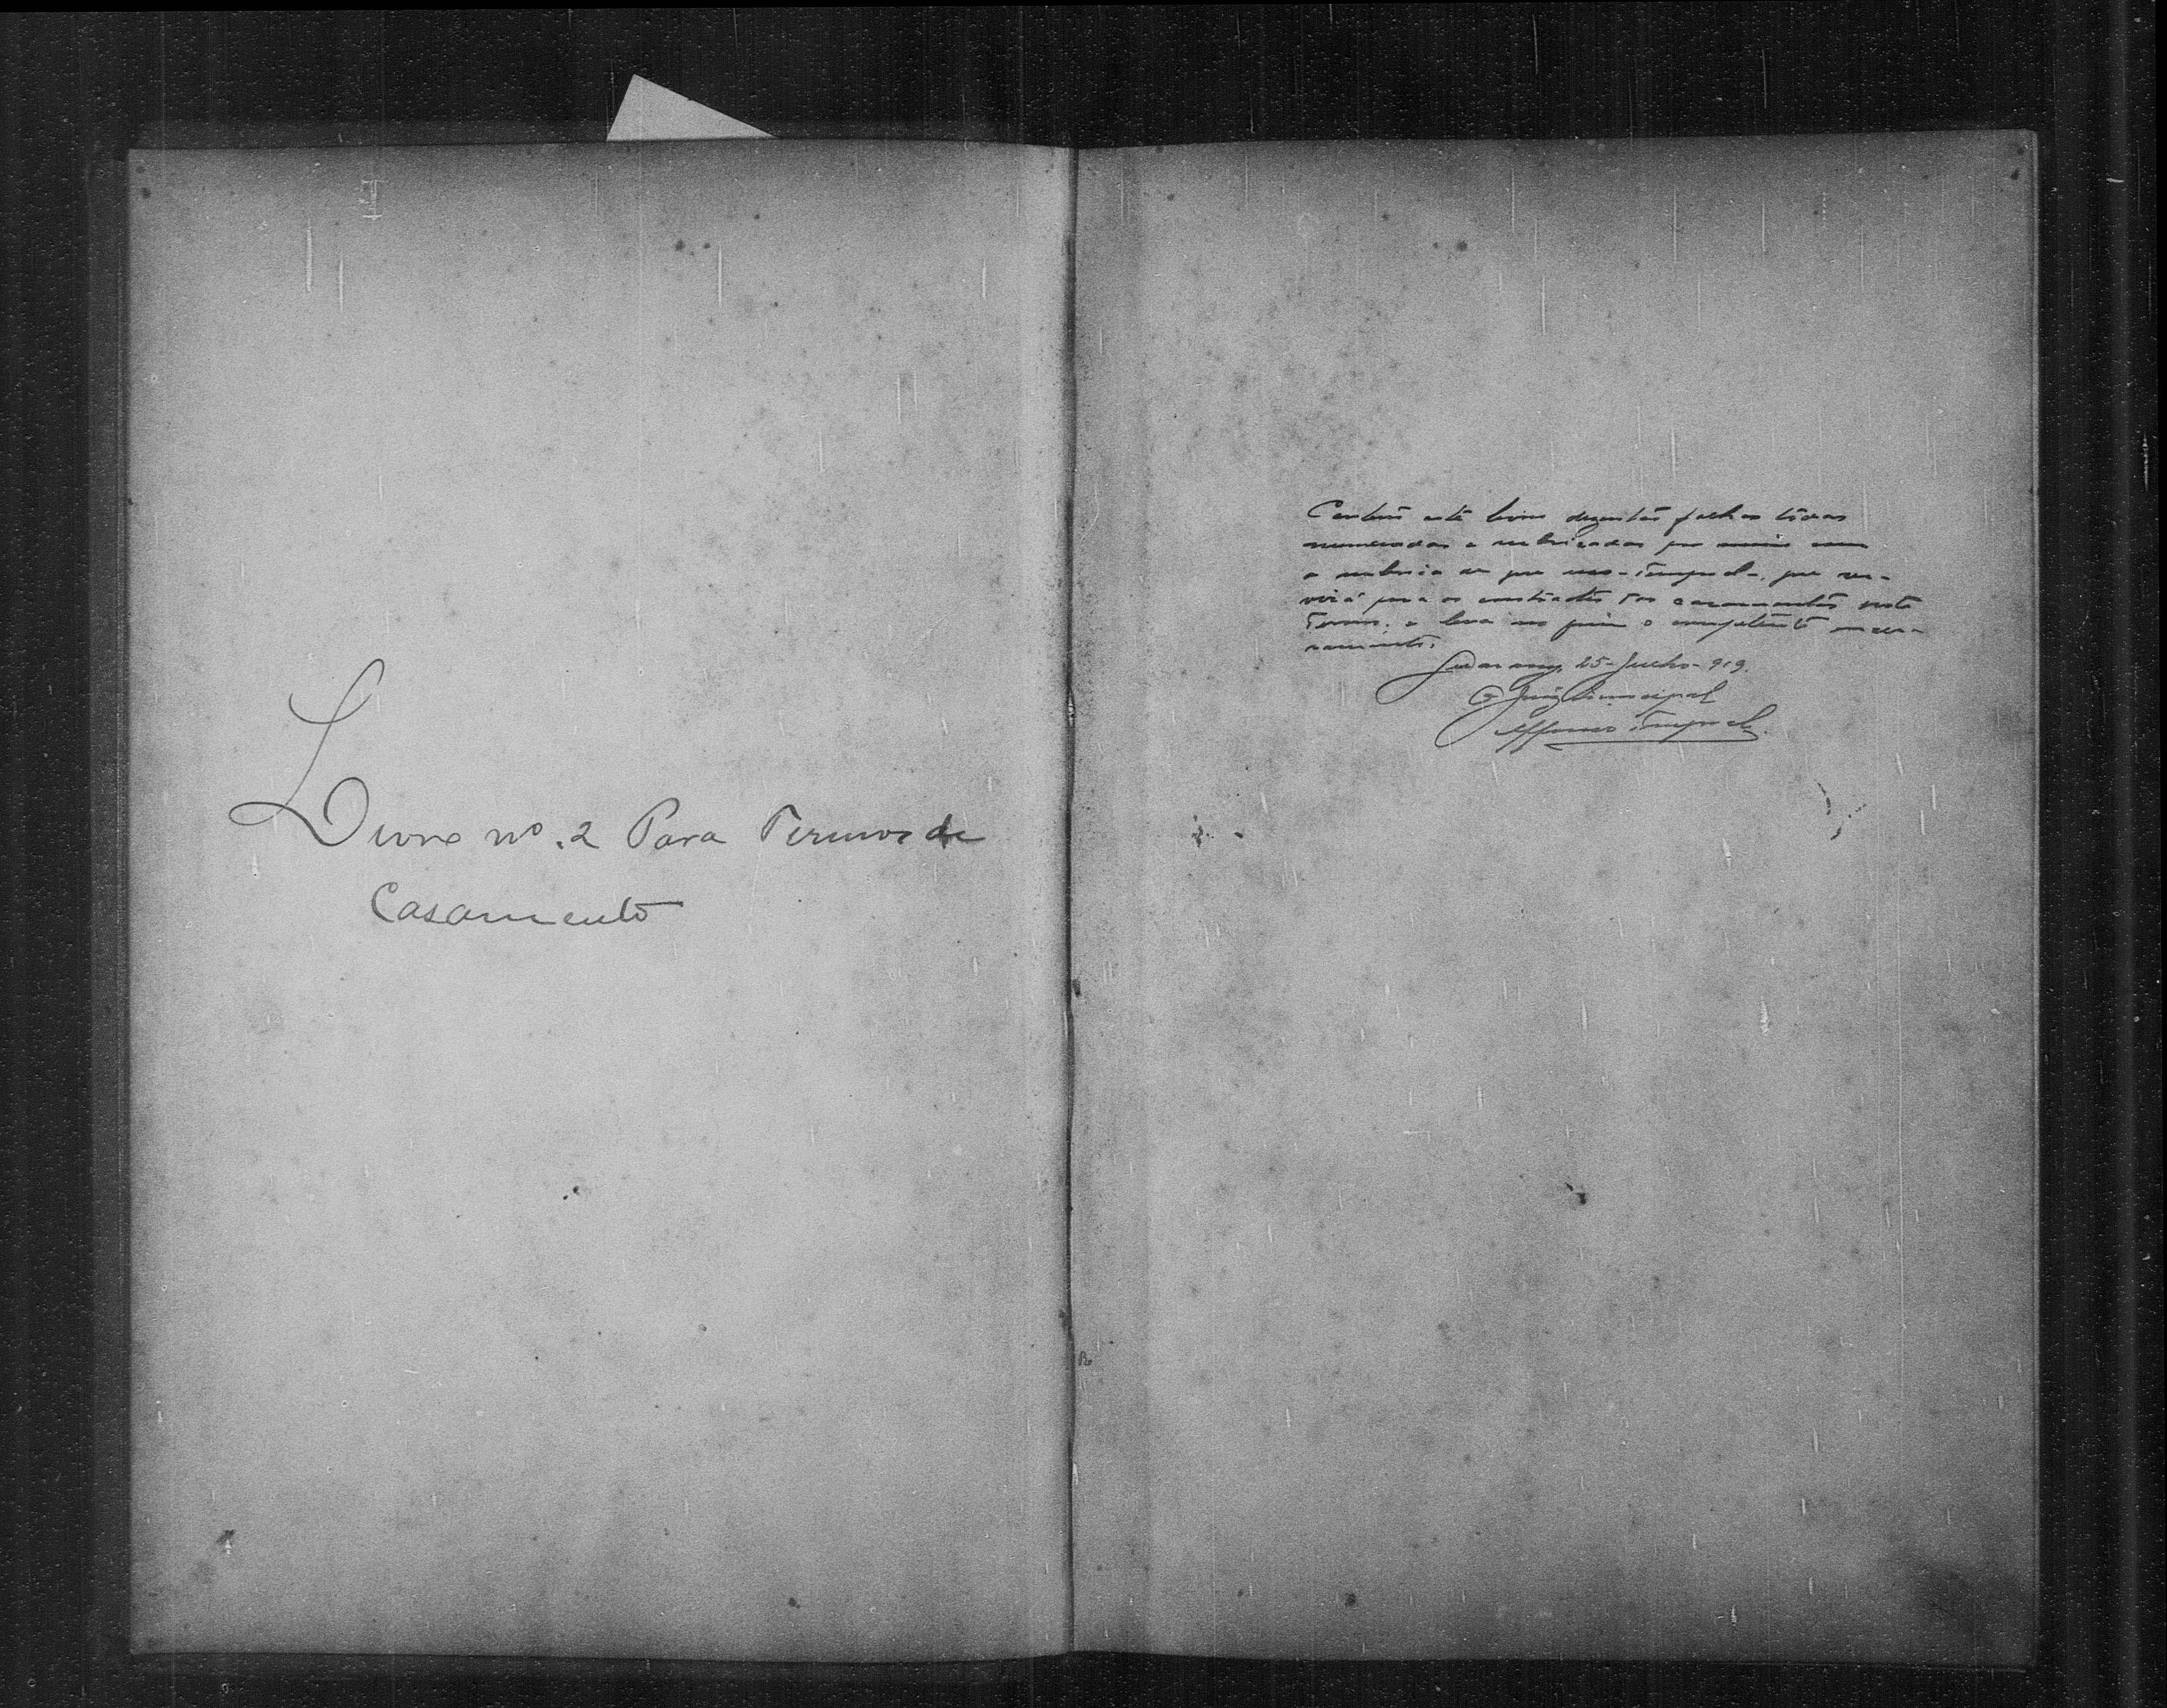 Livro nº. 2 Para Termos de
Casamento
Contem este livro duzentas folhas todas
numeradas e rubricadas por mim com
a rubrica de que uso - Tempel -, que ser-
virá para os contractos dos casamentos neste
Termo. e leva no fim o competente encer-
ramento.
Guarany, 25 - Julho - 919.
O Juiz Municipal
Affonso